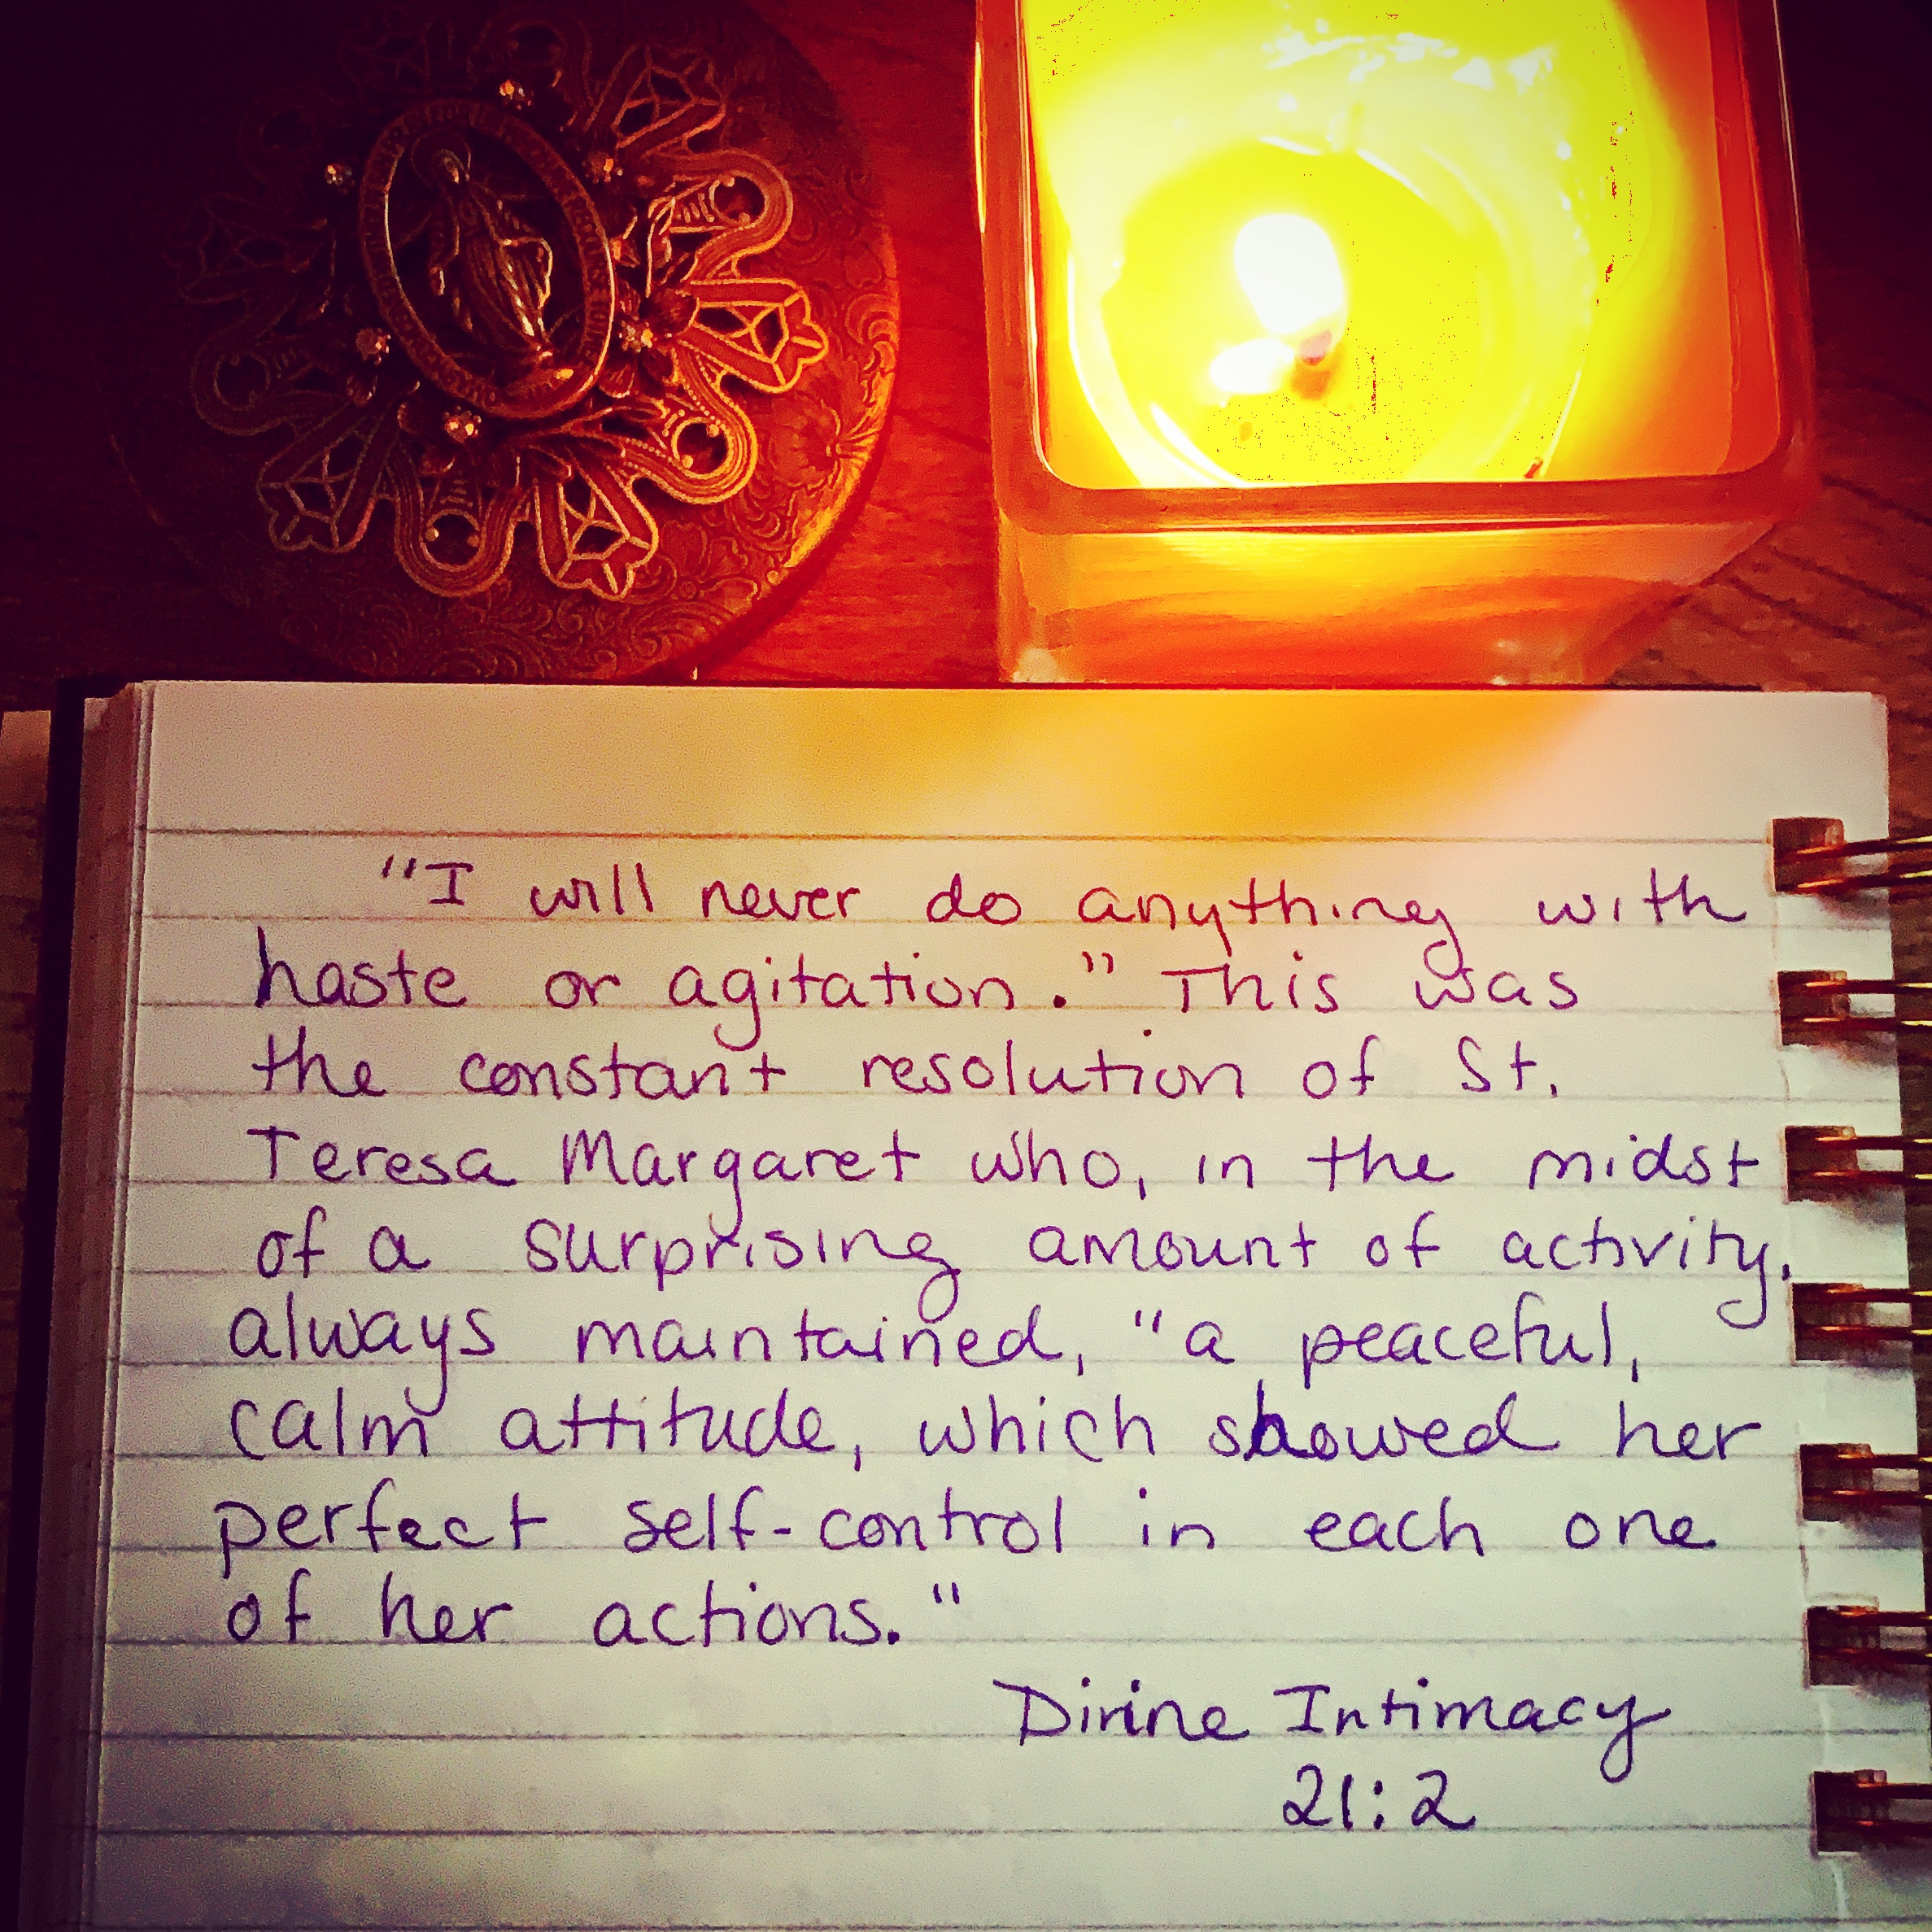 "I will never do anything with
haste or agitation." This was
the constant resolution of St.
Teresa Margaret who, in the midst
of a surprising amount of activity,
always maintained, "a peaceful,
calm attitude, which showed her
perfect self-control in each one
of her actions."
Divine Intimacy
21:2